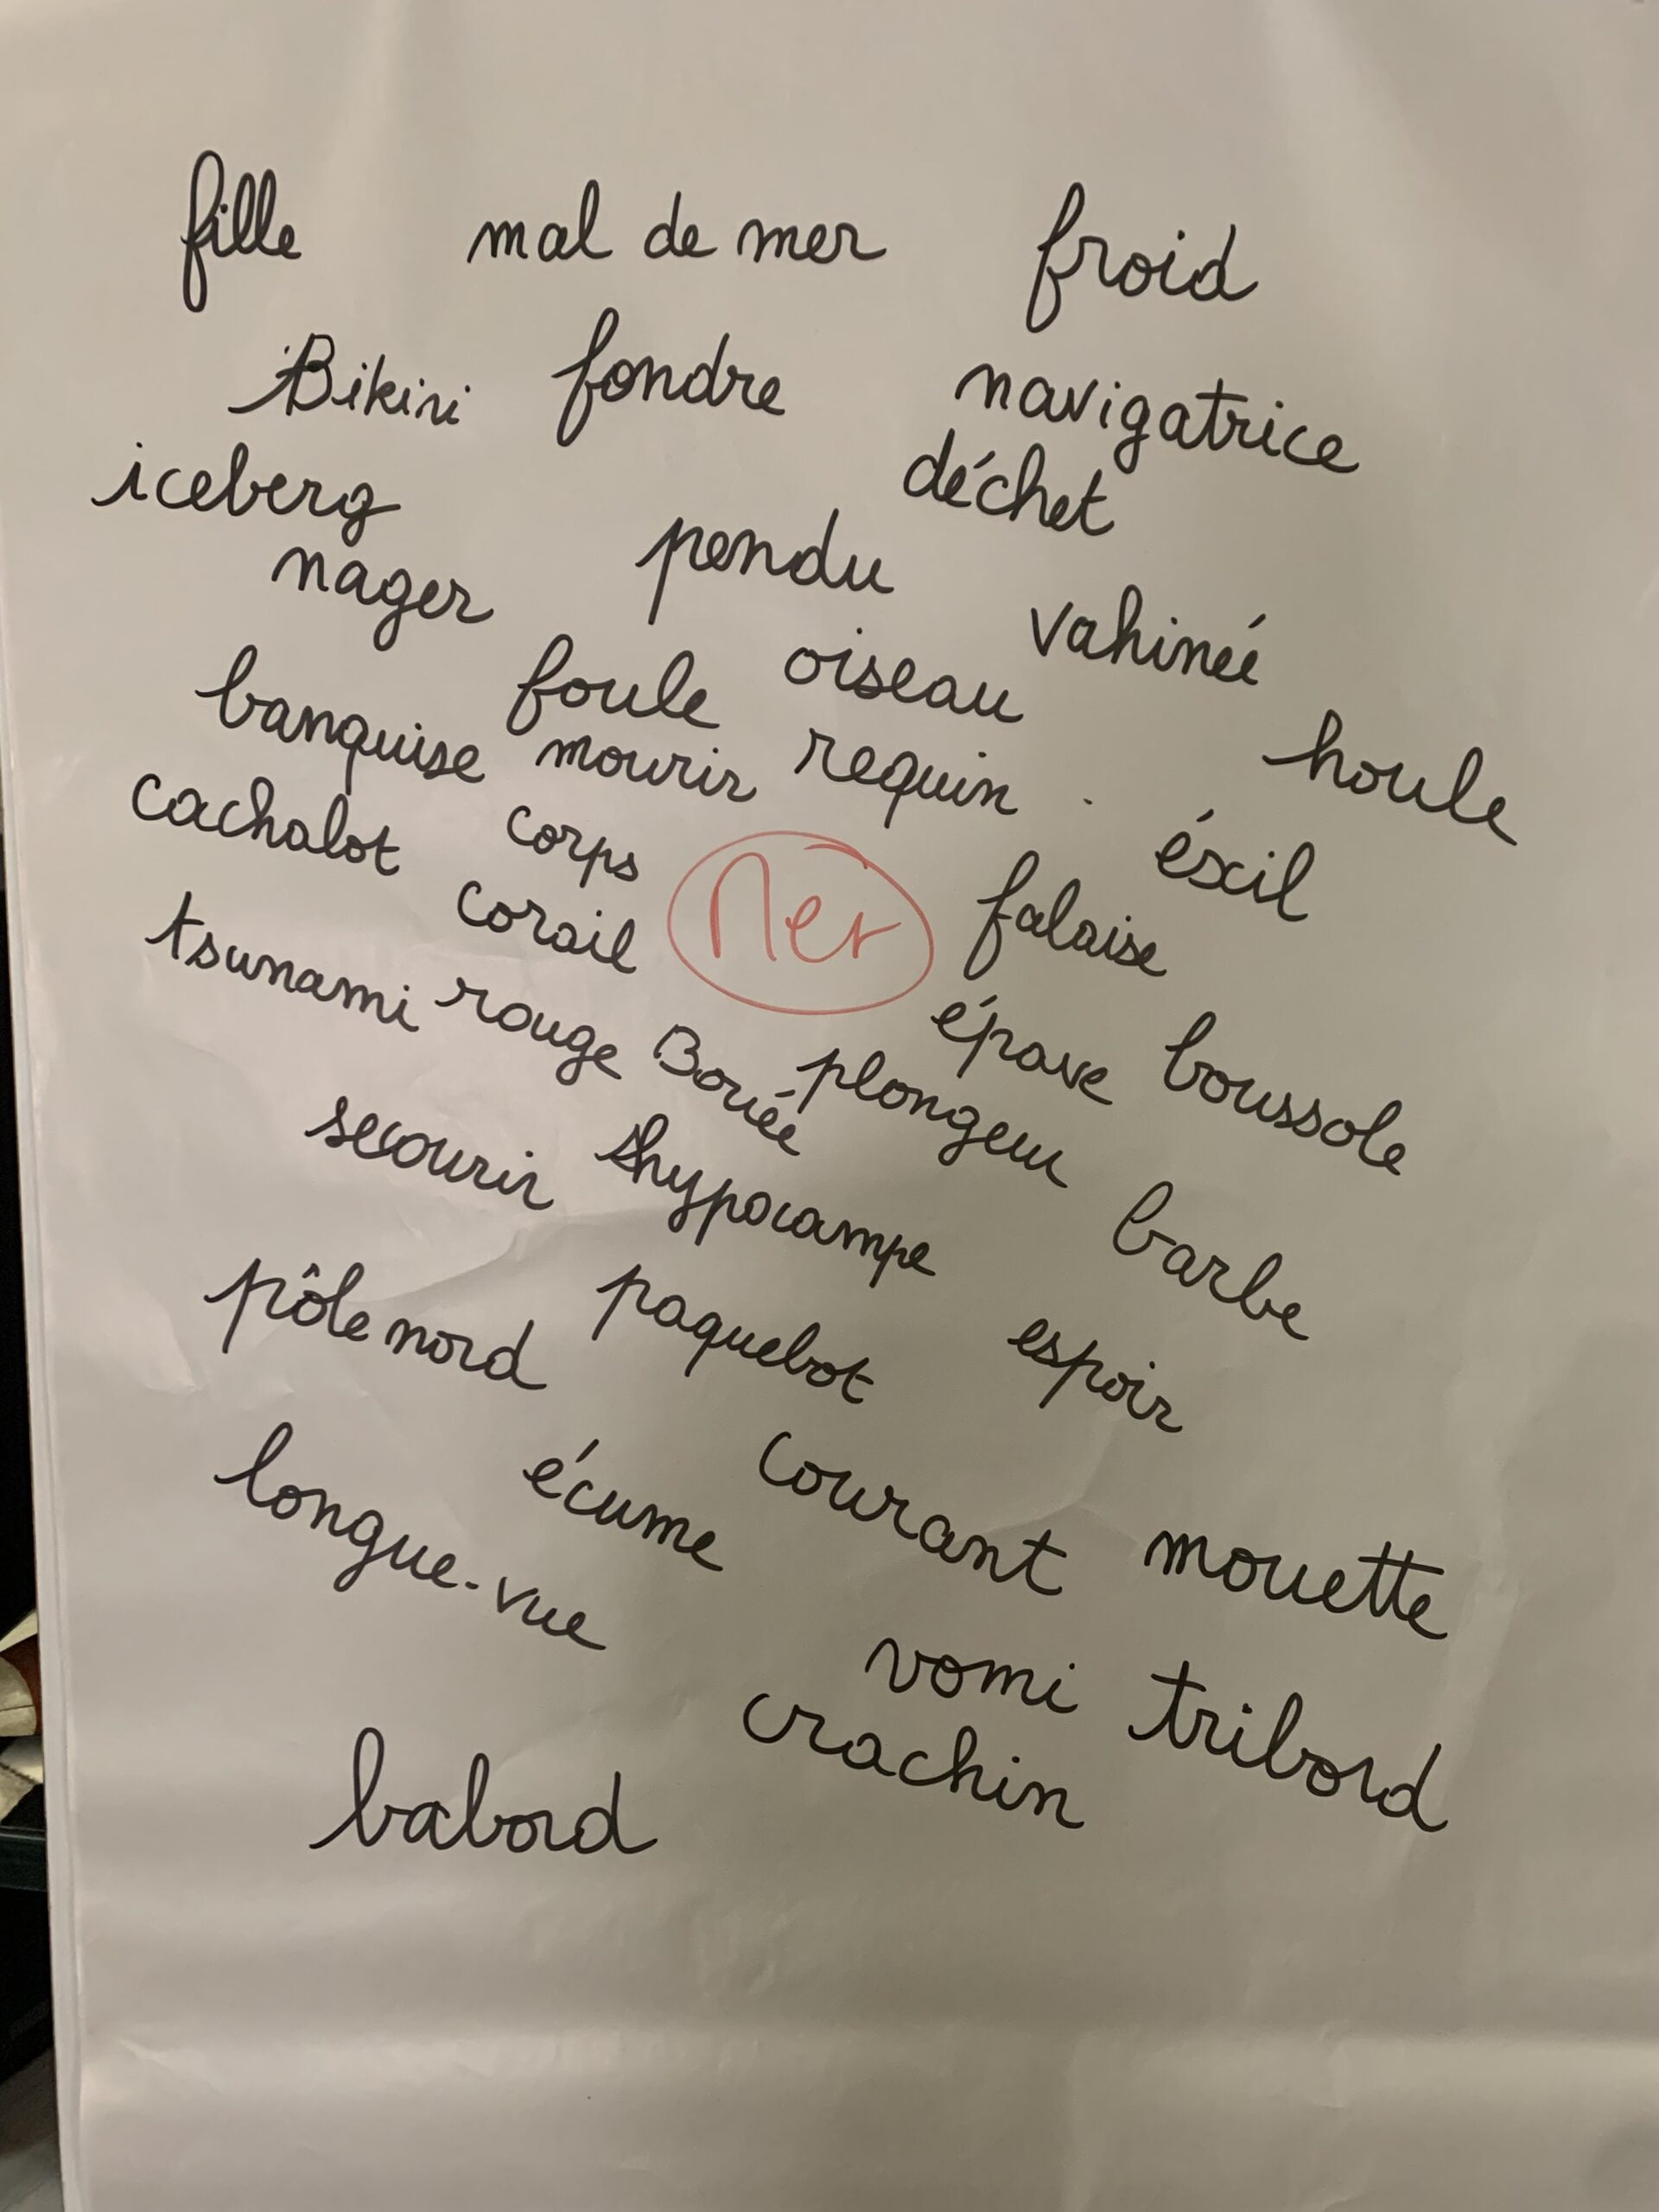 fille mal de mer froid
Bikini fondre navigatrice
iceberg déchet
nager pendu vahinéé
foule oiseau houle
banquise mourir requin
cachalot corps éxil
corail Mer falaise
tsunami rouge Bouée épave boussole
plongeur
secourir hypocampe barbe
pôle nord paquebot espoir
longue-vue écume courant mouette
vomi tribord
babord crachin